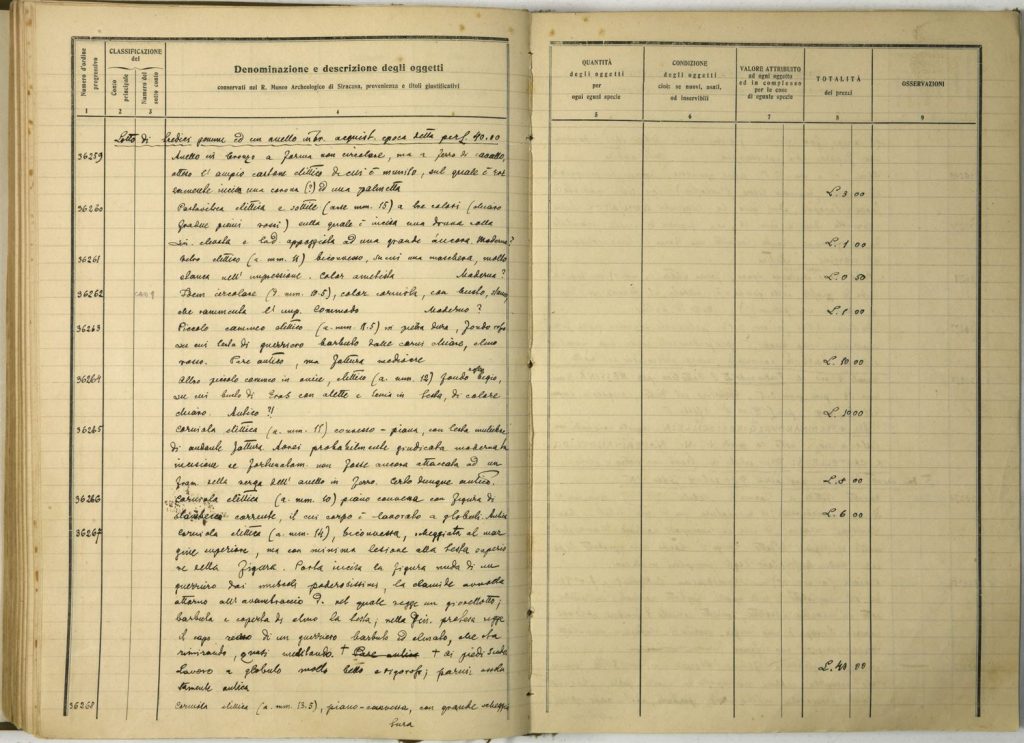 Numero d'ordine progressivo
CLASSIFICAZIONE
del
Conto principale
Numero del sotto conto
Denominazione e descrizione degli oggetti
conservati nel R. Museo Archeologico di Siracusa, provenienza e titoli giustificativi
1 2 3 4
QUANTITÀ
degli oggetti
per
ogni egual specie
CONDIZIONE
degli oggetti
cioè: se nuovi, usati,
od inservibili
VALORE ATTRIBUITO
ad ogni oggetto
ed in complesso
per le cose
di eguale specie
TOTALITÀ
dei prezzi
OSSERVAZIONI
5 6 7 8 9
Lotto di tredici gemme ed un anello acquist. epoca detta per L. 40.00
36259 Anello in bronzo a forma non circolare, ma a ferro di cavallo,
oltre l'ampio castone ellittico di cui è munito, sul quale è
incisa una corona (?) ed una palmetta L. 3 00
36260 ellittica e sottile (asse mm. 15) a tre colori (chiaro
rossi) sulla quale è incisa una donna
appoggiata ad una grande àncora. Moderna?
L. 1 00
36261 ellittico (a. mm. 11) biconvesso, su cui una maschera, molto
nell'impressione. Color ametista Moderno? L. 0 50
36262 Idem circolare (d. mm. 10.5), color corniola, con busto,
che rammenta l'imp. Commodo Moderno? L. 1 00
36263 Piccolo cammeo ellittico (a. mm. 11.5) in pietra dura, fondo
su cui testa di guerriero barbuto dalle carni chiare, elmo
rosso. Pare antico, ma fattura mediocre L. 10 00
36264 Altro piccolo cammeo in onice, ellittico (a. mm. 12) fondo bigio,
su cui busto di Eros con alette e tenia in testa, di colore
chiaro. Antico?! L. 10 00
36265 Corniola ellittica (a. mm. 11) convesso-piana, con testa muliebre
di andante fattura. Avrei probabilmente giudicata moderna la
incisione se fortunatam. non fosse ancora attaccata ad un
fram. della verga dell'anello in ferro. Certo dunque antica. L. 8 00
36266 Corniola ellittica (a. mm. 10) piano convessa con figura di
corrente, il cui corpo è lavorato a globuli. Antica L. 6 00
36267 Corniola ellittica (a. mm. 14), biconvessa, scheggiata al mar
gine superiore, ma con minima lesione alla testa superio
re della figura. Porta incisa la figura nuda di un
guerriero dai muscoli poderosissimi, la clamide avvolta
attorno all'avambraccio d. nel quale regge un giavellotto;
barbuta e coperta di elmo la testa; nella sin. protesa regge
il capo di un guerriero barbuto ed elmato, che sta
rimirando, quasi meditando. + Pare antica + Ai piedi scudo
Lavoro a globulo molto bello e vigoroso; parmi assolu
tamente antica L. 40 00
36268 Corniola ellittica (a. mm. 13.5), piano-convessa, con grande scheggia
tura